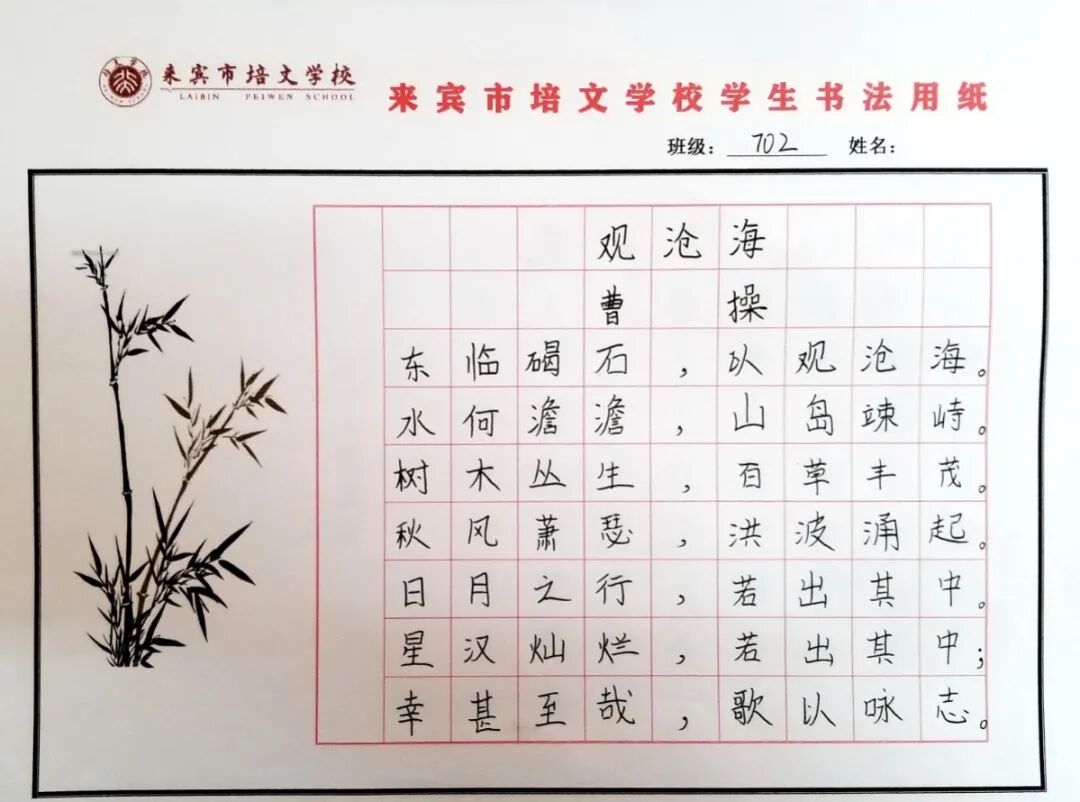 来宾市培文学校
LAIBIN PEIWEN SCHOOL
来宾市培文学校学生书法用纸
班级: 702 姓名:
观沧海
曹操
东临碣石,以观沧海。
水何澹澹,山岛竦峙。
树木丛生,百草丰茂。
秋风萧瑟,洪波涌起。
日月之行,若出其中。
星汉灿烂,若出其中;
幸甚至哉,歌以咏志。